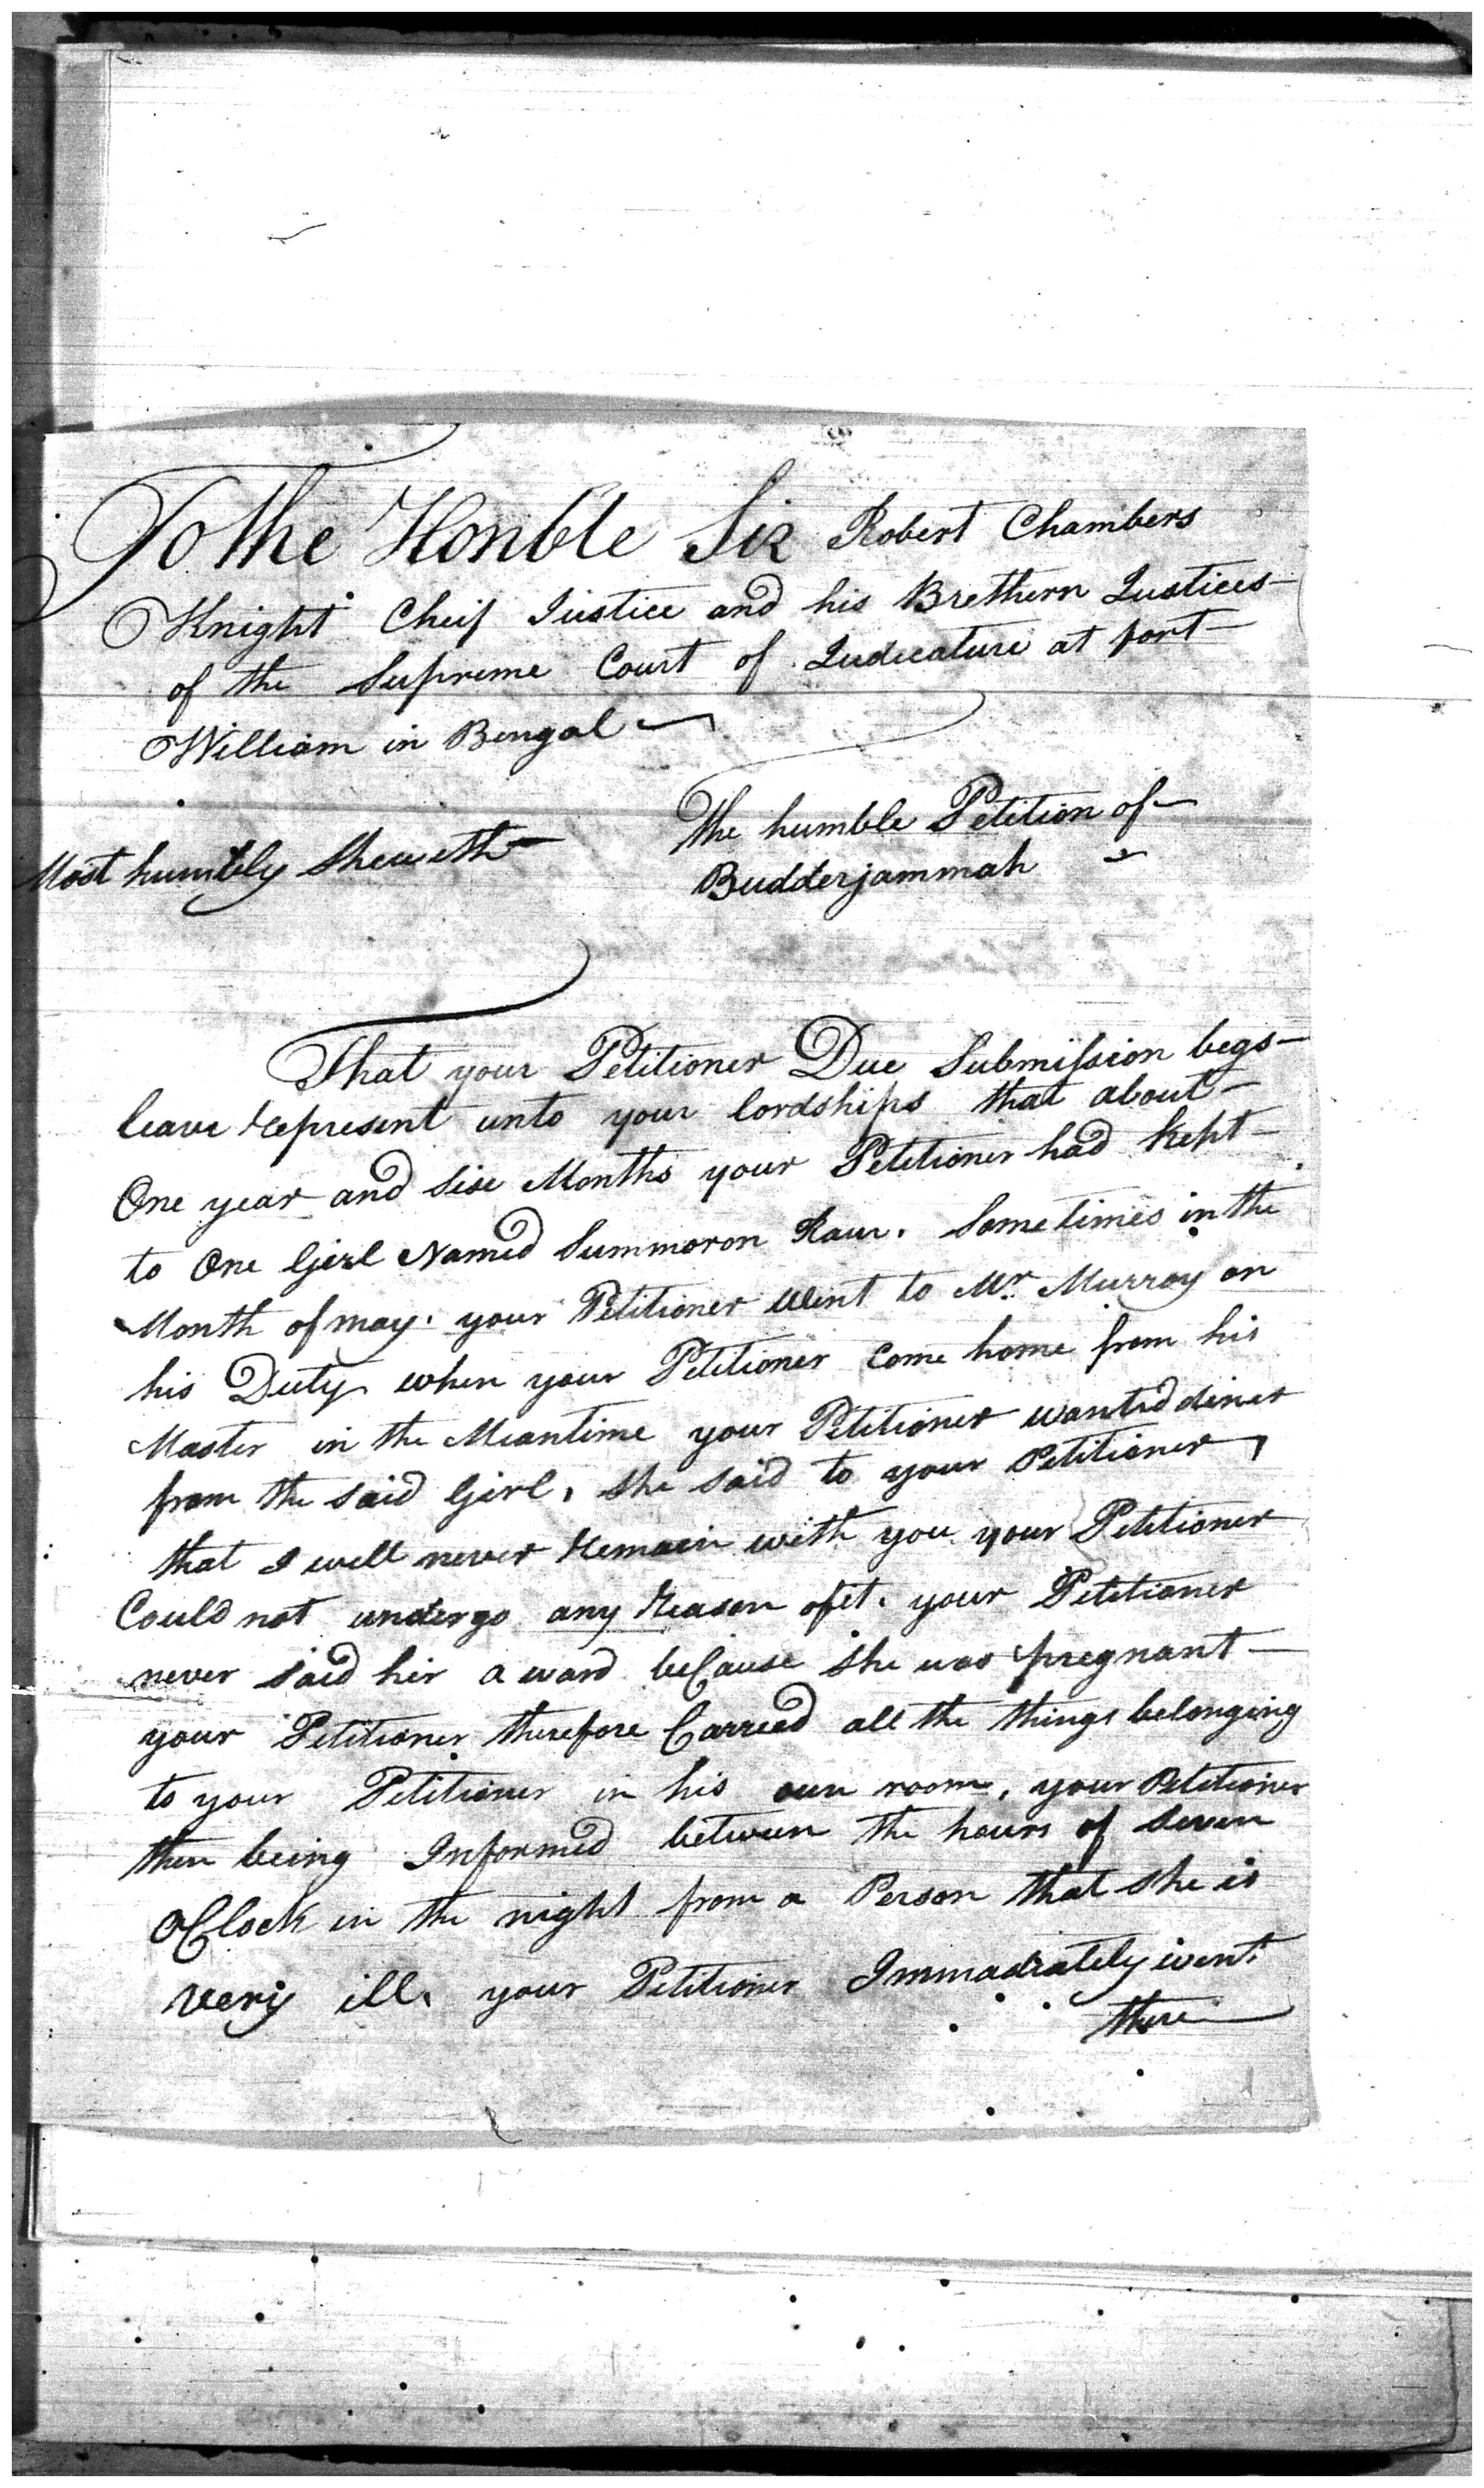 To the Honble Sir Robert Chambers
Knight Cheif Justice and his Brethern Justices
of the Supreme Court of Judicature at fort
William in Bengal
The humble Petition of
Budderjammah
Most humbly Sheweth
That your Petitioner Due Submission begs
leave represent unto your lordships that about
One year and Six Months your Petitioner had kept
to One Girl Named Summoron Raur. Sometimes in the
Month of may. your Petitioner Went to Mr. Murray on
his Duty when your Petitioner come home from his
Master in the Meantime your Petitioner wanted diner
from the said Girl, she said to your Petitioner,
that I will never remain with you your Petitioner
Could not undergo any reason of it. your Petitioner
never said her a word beCause she was pregnant
your Petitioner therefore Carried all the things belonging
to your Petitioner in his own room, your Petitioner
then being Informed between the hours of Seven
oClock in the night from a Person that she is
very ill. your Petitioner Immadiately went
there